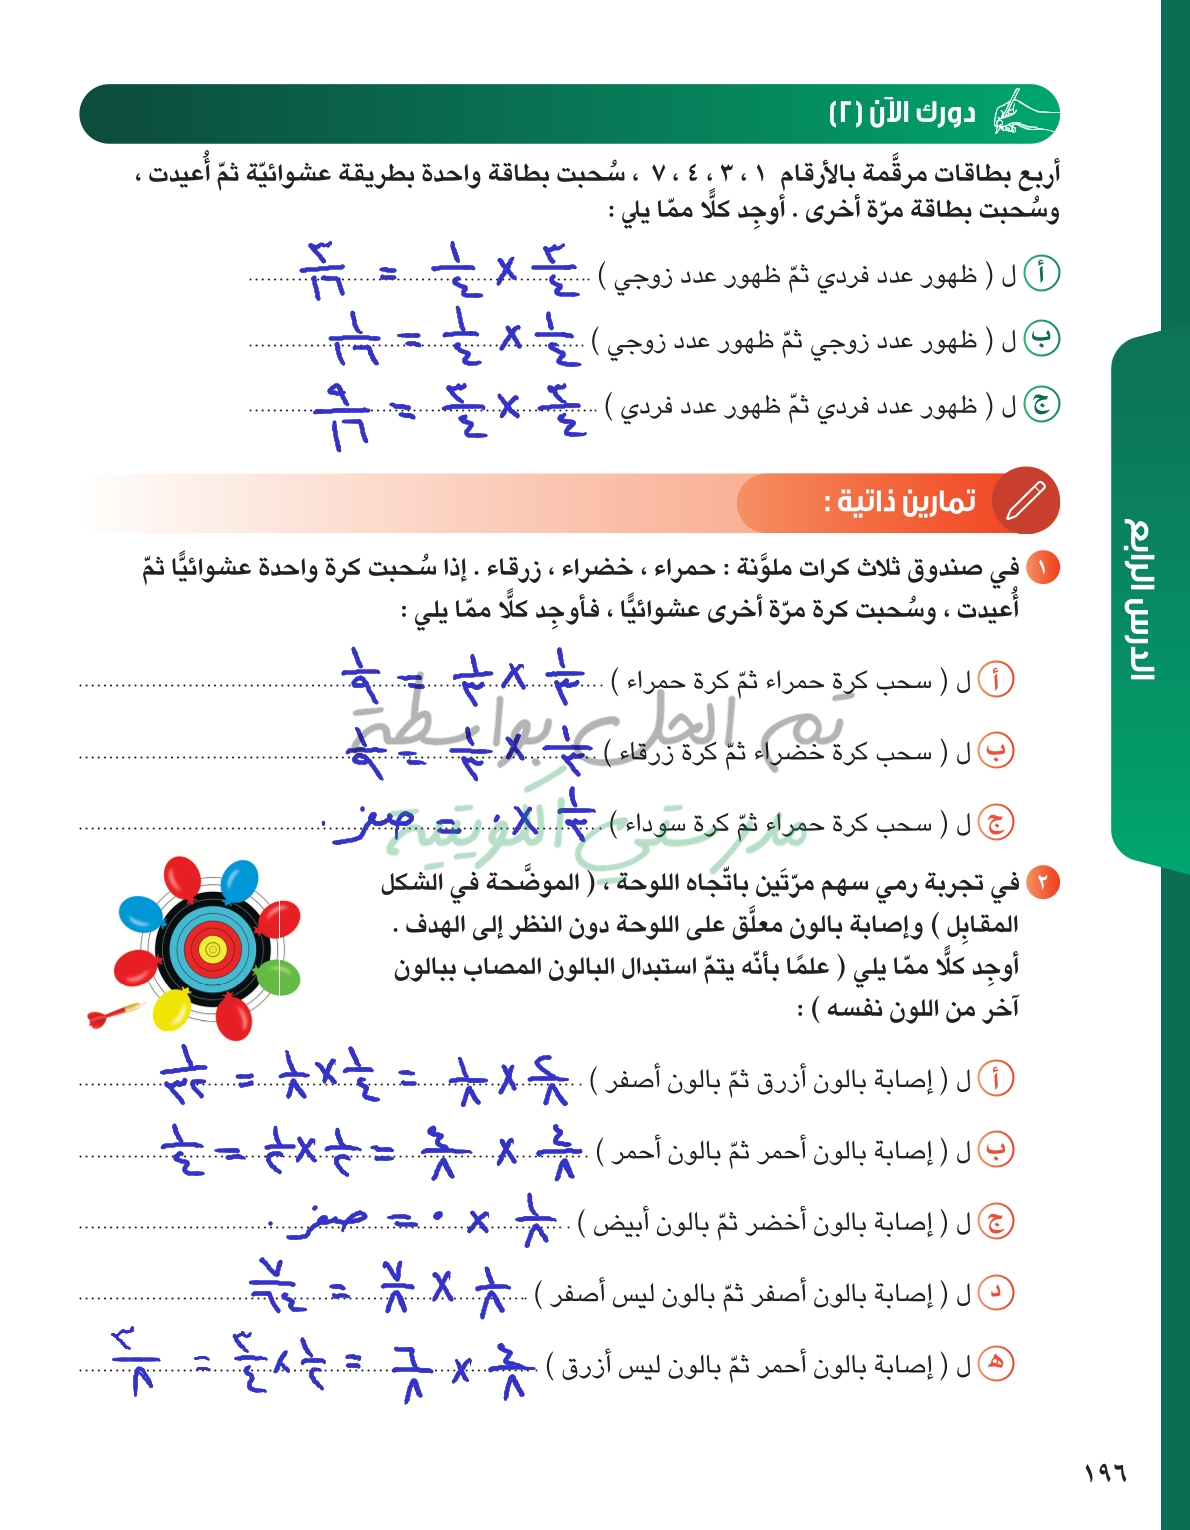 دورك الآن (٢)
أربع بطاقات مرقَّمة بالأرقام ١ ، ٣ ، ٤ ، ٧ ، سُحبت بطاقة واحدة بطريقة عشوائيّة ثمّ أُعيدت ،
وسُحبت بطاقة مرّة أخرى . أوجِد كلًّا ممّا يلي :
أ ل ( ظهور عدد فردي ثمّ ظهور عدد زوجي ) ٣/٤ × ١/٤ = ٣/١٦
ب ل ( ظهور عدد زوجي ثمّ ظهور عدد زوجي ) ١/٤ × ١/٤ = ١/١٦
ج ل ( ظهور عدد فردي ثمّ ظهور عدد فردي ) ٣/٤ × ٣/٤ = ٩/١٦
تمارين ذاتية :
١ في صندوق ثلاث كرات ملوَّنة : حمراء ، خضراء ، زرقاء . إذا سُحبت كرة واحدة عشوائيًّا ثمّ
أُعيدت ، وسُحبت كرة مرّة أخرى عشوائيًّا ، فأوجِد كلًّا ممّا يلي :
أ ل ( سحب كرة حمراء ثمّ كرة حمراء ) ١/٣ × ١/٣ = ١/٩
تم الحل بواسطة
ب ل ( سحب كرة خضراء ثمّ كرة زرقاء ) ١/٣ × ١/٣ = ١/٩
ج ل ( سحب كرة حمراء ثمّ كرة سوداء ) ١/٣ × ٠ = صفر .
مدرستي الكويتية
٢ في تجربة رمي سهم مرّتَين باتّجاه اللوحة ، ( الموضَّحة في الشكل
المقابِل ) وإصابة بالون معلَّق على اللوحة دون النظر إلى الهدف .
أوجِد كلًّا ممّا يلي ( علمًا بأنّه يتمّ استبدال البالون المصاب ببالون
آخر من اللون نفسه ) :
أ ل ( إصابة بالون أزرق ثمّ بالون أصفر ) ٢/٨ × ١/٨ = ١/٤ × ١/٨ = ١/٣٢
ب ل ( إصابة بالون أحمر ثمّ بالون أحمر ) ٤/٨ × ٤/٨ = ١/٢ × ١/٢ = ١/٤
ج ل ( إصابة بالون أخضر ثمّ بالون أبيض ) ١/٨ × ٠ = صفر .
د ل ( إصابة بالون أصفر ثمّ بالون ليس أصفر ) ١/٨ × ٧/٨ = ٧/٦٤
ه ل ( إصابة بالون أحمر ثمّ بالون ليس أزرق ) ٤/٨ × ٦/٨ = ١/٢ × ٣/٤ = ٣/٨
الدرس الرابع
١٩٦